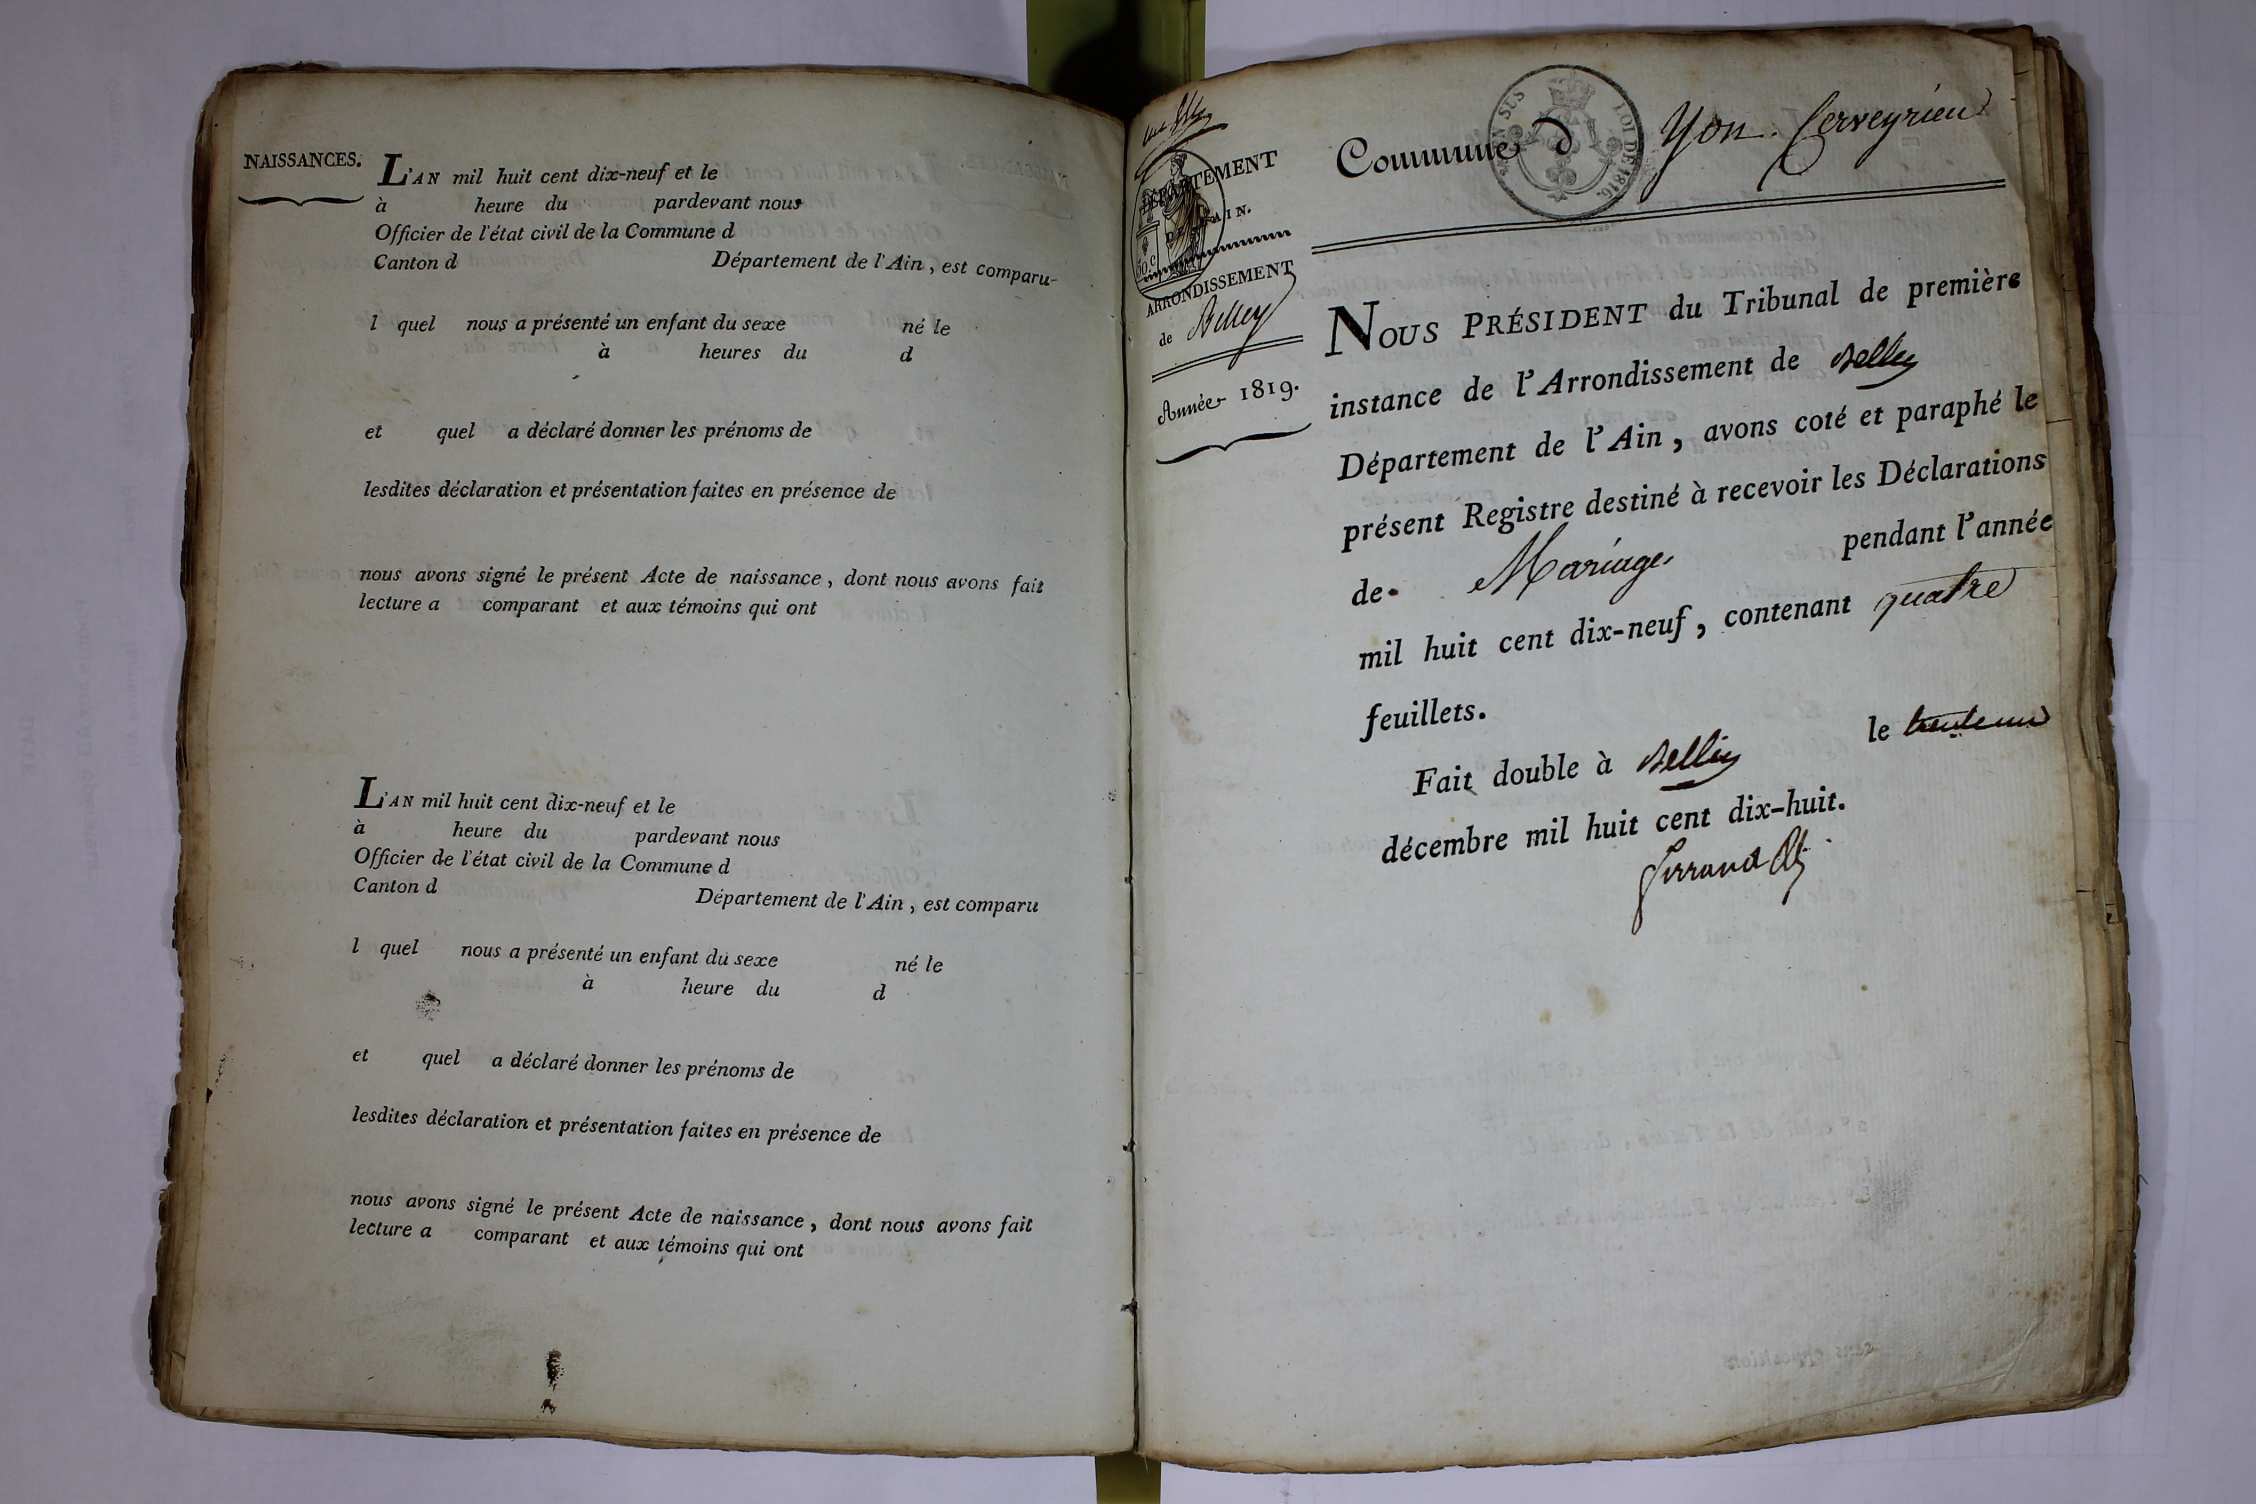 NAISSANCES.
L'AN mil huit cent dix-neuf et le
à heure du pardevant nous
Officier de l'état civil de la Commune d
Canton d Département de l'Ain, est comparu-
l quel nous a présenté un enfant du sexe né le
à heures du d
et quel a déclaré donner les prénoms de
lesdites déclaration et présentation faites en présence de
nous avons signé le présent Acte de naissance, dont nous avons fait
lecture a comparant et aux témoins qui ont
L'AN mil huit cent dix-neuf et le
à heure du pardevant nous
Officier de l'état civil de la Commune d
Canton d Département de l'Ain, est comparu
l quel nous a présenté un enfant du sexe né le
à heure du d
et quel a déclaré donner les prénoms de
lesdites déclaration et présentation faites en présence de
nous avons signé le présent Acte de naissance, dont nous avons fait
lecture a comparant et aux témoins qui ont
DÉPARTEMENT
DE L'AIN.
50.c
ARRONDISSEMENT
de Belley
Année 1819.
Commune d Yon. Cerveyrieu
EN SUS
LOI DE 1816.
NOUS PRÉSIDENT du Tribunal de première
instance de l'Arrondissement de Belley
Département de l'Ain, avons coté et paraphé le
présent Registre destiné à recevoir les Déclarations
de Mariages pendant l'année
mil huit cent dix-neuf, contenant quatre
feuillets.
Fait double à Belley le trente un
décembre mil huit cent dix-huit.